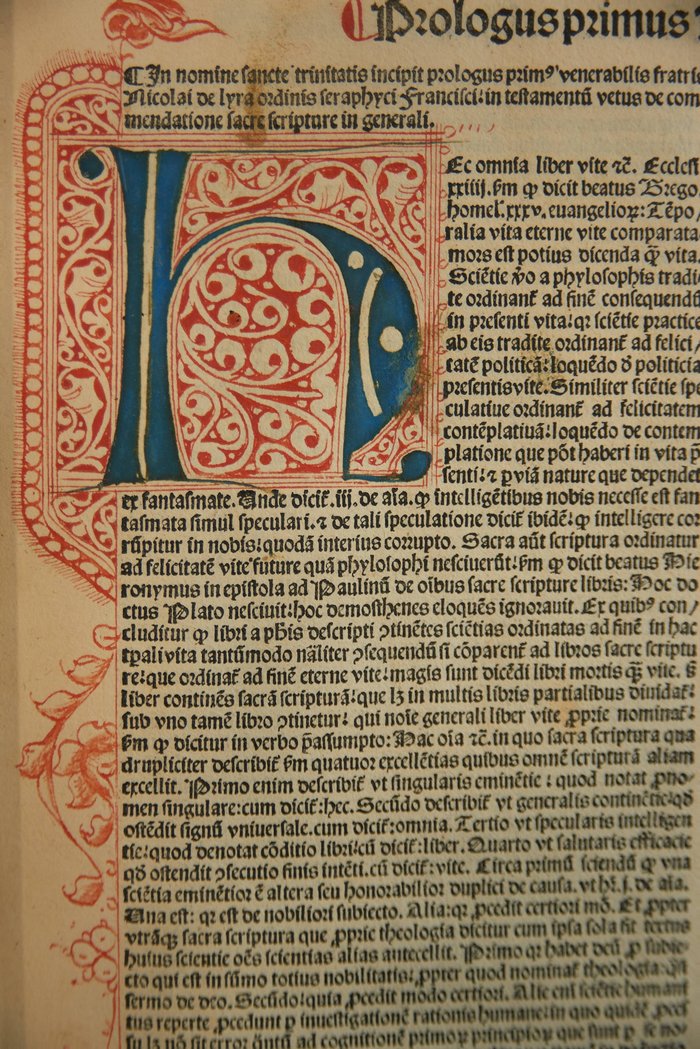 Prologus primus
¶In nomine sancte trinitatis incipit prologus primꝰ venerabilis fratri
Nicolai de lyra ordinis seraphyci Francisci: in testamentū vetus de com
mendatione sacre scripture in generali.
HEc omnia liber vite ⁊c̄. Ecclesi
xxiiij. s̄m ꝙ dicit beatus Grego
homel. xxxv. euangelioꝝ: Tēpo
ralia vita eterne vite comparata
mors est potius dicenda q̄ꝫ vita.
Sciētie v̄o a phylosophis tradi
te ordinant̄ ad finē consequendū
in presenti vita: qr sciētie practice
ab eis tradite ordinant̄ ad felici/
tatē politicā: loquēdo ð politicia
presentis vite. Similiter sciētie spe
culatiue ordinant̄ ad felicitatem
contēplatiuā: loquēdo de contem
platione que pōt haberi in vita p̄
senti: ⁊ ꝑ viā nature que dependet
ex fantasmate. Unde dicit̄. iij. de aīa. ꝙ intelligētibus nobis necesse est fan
tasmata simul speculari. ⁊ de tali speculatione dicit̄ ibidē: ꝙ intelligere cor
rūpitur in nobis: quodā interius corrupto. Sacra aūt scriptura ordinatur
ad felicitatē vite future quā phylosophi nesciuerūt: s̄m ꝙ dicit beatus Hie
ronymus in epistola ad Paulinū de oībus sacre scripture libris: Hoc do
ctus Plato nesciuit: hoc demosthenes eloquēs ignorauit. Ex quibꝰ con/
cluditur ꝙ libri a ph̄is descripti ꝯtinētes sciētias ordinatas ad finē in hac
tp̄ali vita tantūmodo nāliter ꝯsequendū si cōparent̄ ad libros sacre scriptu
re: que ordinat̄ ad finē eterne vite: magis sunt dicēdi libri mortis q̄ꝫ vite. s̄
liber continēs sacrā scripturā: que lꝫ in multis libris partialibus diuidat̄:
sub vno tamē libro ꝯtinetur: qui noīe generali liber vite ꝓprie nominat̄:
s̄m ꝙ dicitur in verbo p̄assumpto: Hac oīa ⁊c̄. in quo sacra scriptura qua
drupliciter describit̄ s̄m quatuor excellētias quibus omnē scripturā aliam
excellit. Primo enim describit̄ vt singularis eminētie: quod notat ꝓno
men singulare: cum dicit̄: hec. Secūdo describit̄ vt generalis continētie: qð
ostēdit signū vniuersale. cum dicit̄: omnia. Tertio vt specularis intelligen
tie: quod denotat cōditio libri: cū dicit̄: liber. Quarto vt salutaris efficacie
qð ostendit ꝯsecutio finis intēti. cū dicit̄: vite. Circa primū sciendū ꝙ vna
sciētia eminētior ē altera seu honorabilior duplici de causa. vt hr̄. j. de aīa.
Una est: qr est de nobiliori subiecto. Alia: qr ꝓcedit certiori mō. Et ꝓpter
vtrāqꝫ sacra scriptura que ꝓprie theologia dicitur cum ipsa sola sit textus
huius scientie oēs scientias alias antecellit. Primo qr habet deū ꝓ subie
cto qui est in sūmo totius nobilitatis: ꝓpter quod nominat̄ theologia: q̄si
sermo de deo. Secūdo: quia ꝓcedit modo certiori. Alie eni sciētie humani
tus reperte ꝓcedunt ꝑ inuestigationē rationis humane: in quo quidē ꝓcel
su lꝫ nō sit error q̄ntū ad cognitionē primoꝝ principioꝝ que sunt ꝑ se no